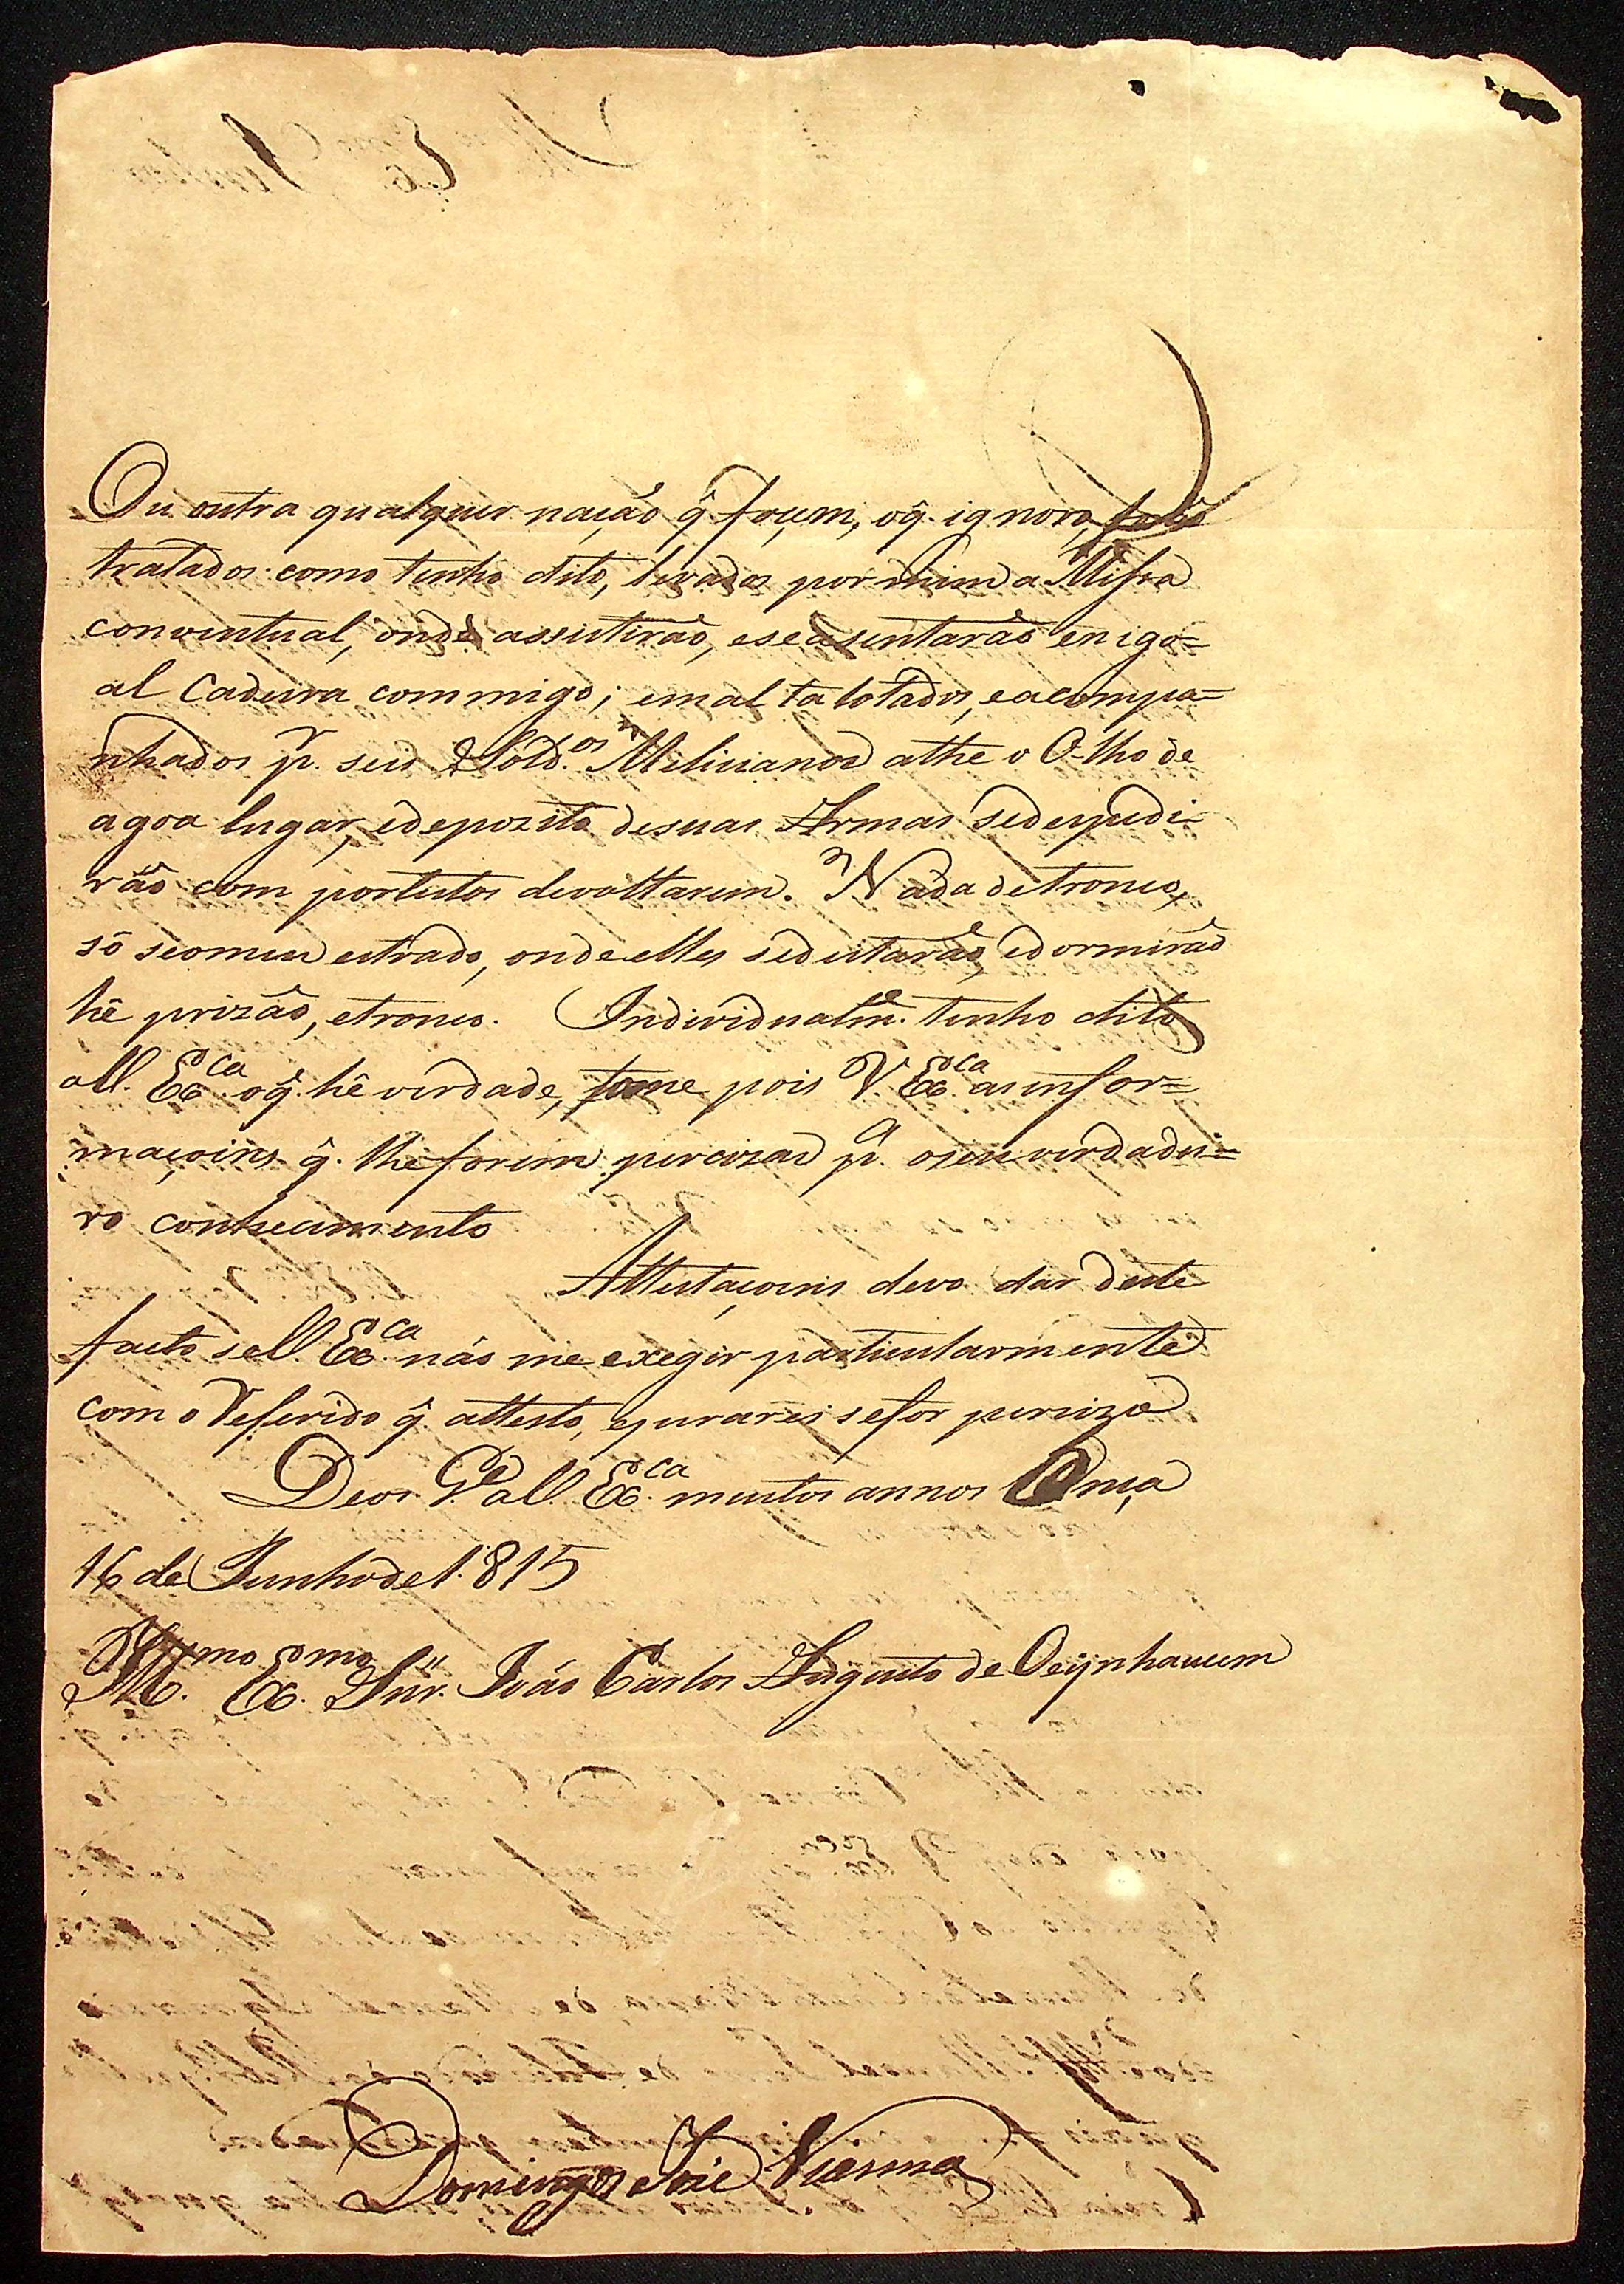 Ou outra qualquer nação q̂ foçem, oq̂. ignoro, forão
tratados como tenho dito, levados por mim a Missa
conventual, onde assistirão, eseasentarão en igo=
al Cadeira commigo; emal talotados, eacompa=
nhados pr. seis Sold.os Milicianos athe o O-lho de
agoa lugar, edepozito desuas Armas sedespedi-
rão com portestos devoltarem. Nada detronco,
só seomeu estrado, ondeelles sedeitarão, edormirão
hê prizão, etronco. Individualme. tenho dito
aV. Exca. oq̂. hê verdade, tome pois V. Exca. asinfor=
maçoins q̂. lheforem percizas pa. oseu verdadei=
ro conhecimento
Attestaçoins devo dar deste
facto seV. Exca. não me exegir particularmente
com o Referido q̂. attesto, ejurarei sefor percizo
Deos Ge. aV. Exca. muitos annos Onça
16 de Junhode1815
Illmo. Exmo. Snr. João Carlos Augusto de Oeijnhausem
Domingos Joze Vianna